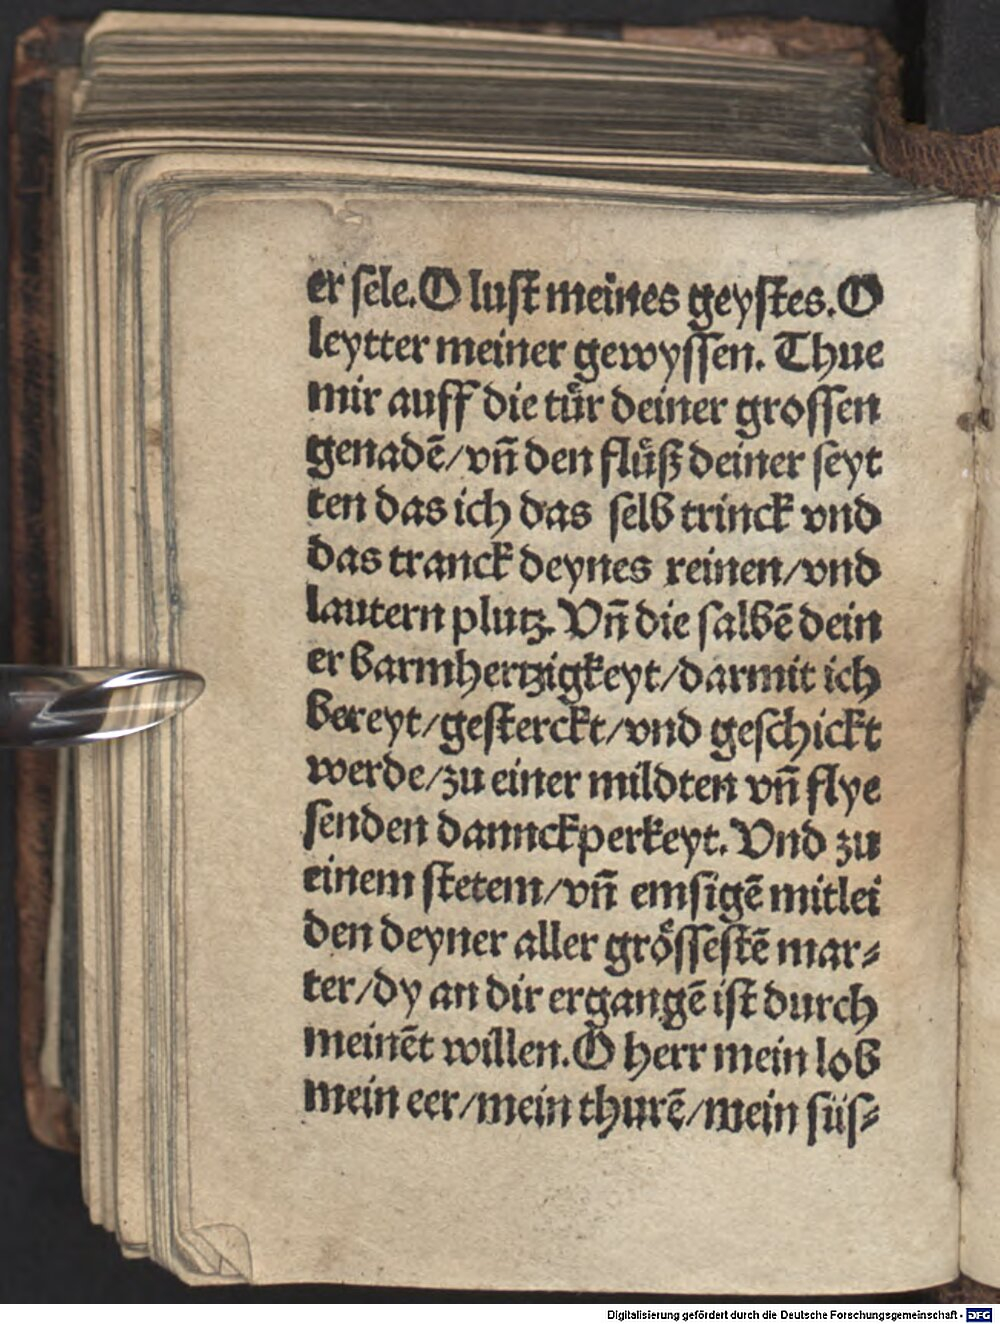 er ſele. O luſt meines geyſtes. O
leytter meiner gewyſſen. Thue
mir auff die tuͤr deiner groſſen
genadē/vn̄ den fluͤß deiner ſeyt
ten das ich das ſelb trinck vnd
das tranck deynes reinen/vnd
lautern plutz. Vn̄ die ſalbē dein
er barmhertzigkeyt/darmit ich
bereyt/geſterckt/vnd geſchickt
werde/zu einer mildten vn̄ flye
ſenden dannckperkeyt. Vnd zu
einem ſtetem/vn̄ emſigē mitlei
den deyner aller groͤſſeſtē mar⸗
ter/dy an dir ergangē iſt durch
meinēt willen. O herr mein lob
mein eer/mein thurē/mein ſüſ⸗
Digitalisierung gefördert durch die Deutsche Forschungsgemeinschaft - DFG